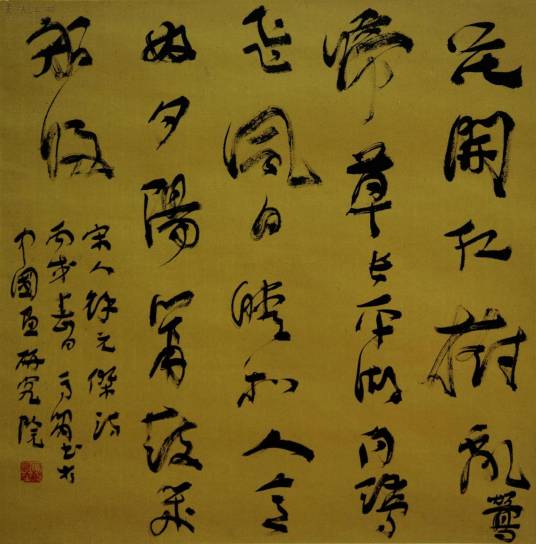 花開红樹亂鶯
啼草長平湖白鷺
飛風日晴和人意
好夕陽簫鼓幾
船歸
宋人徐元傑詩
丙戌春日書於
中國畫研究院